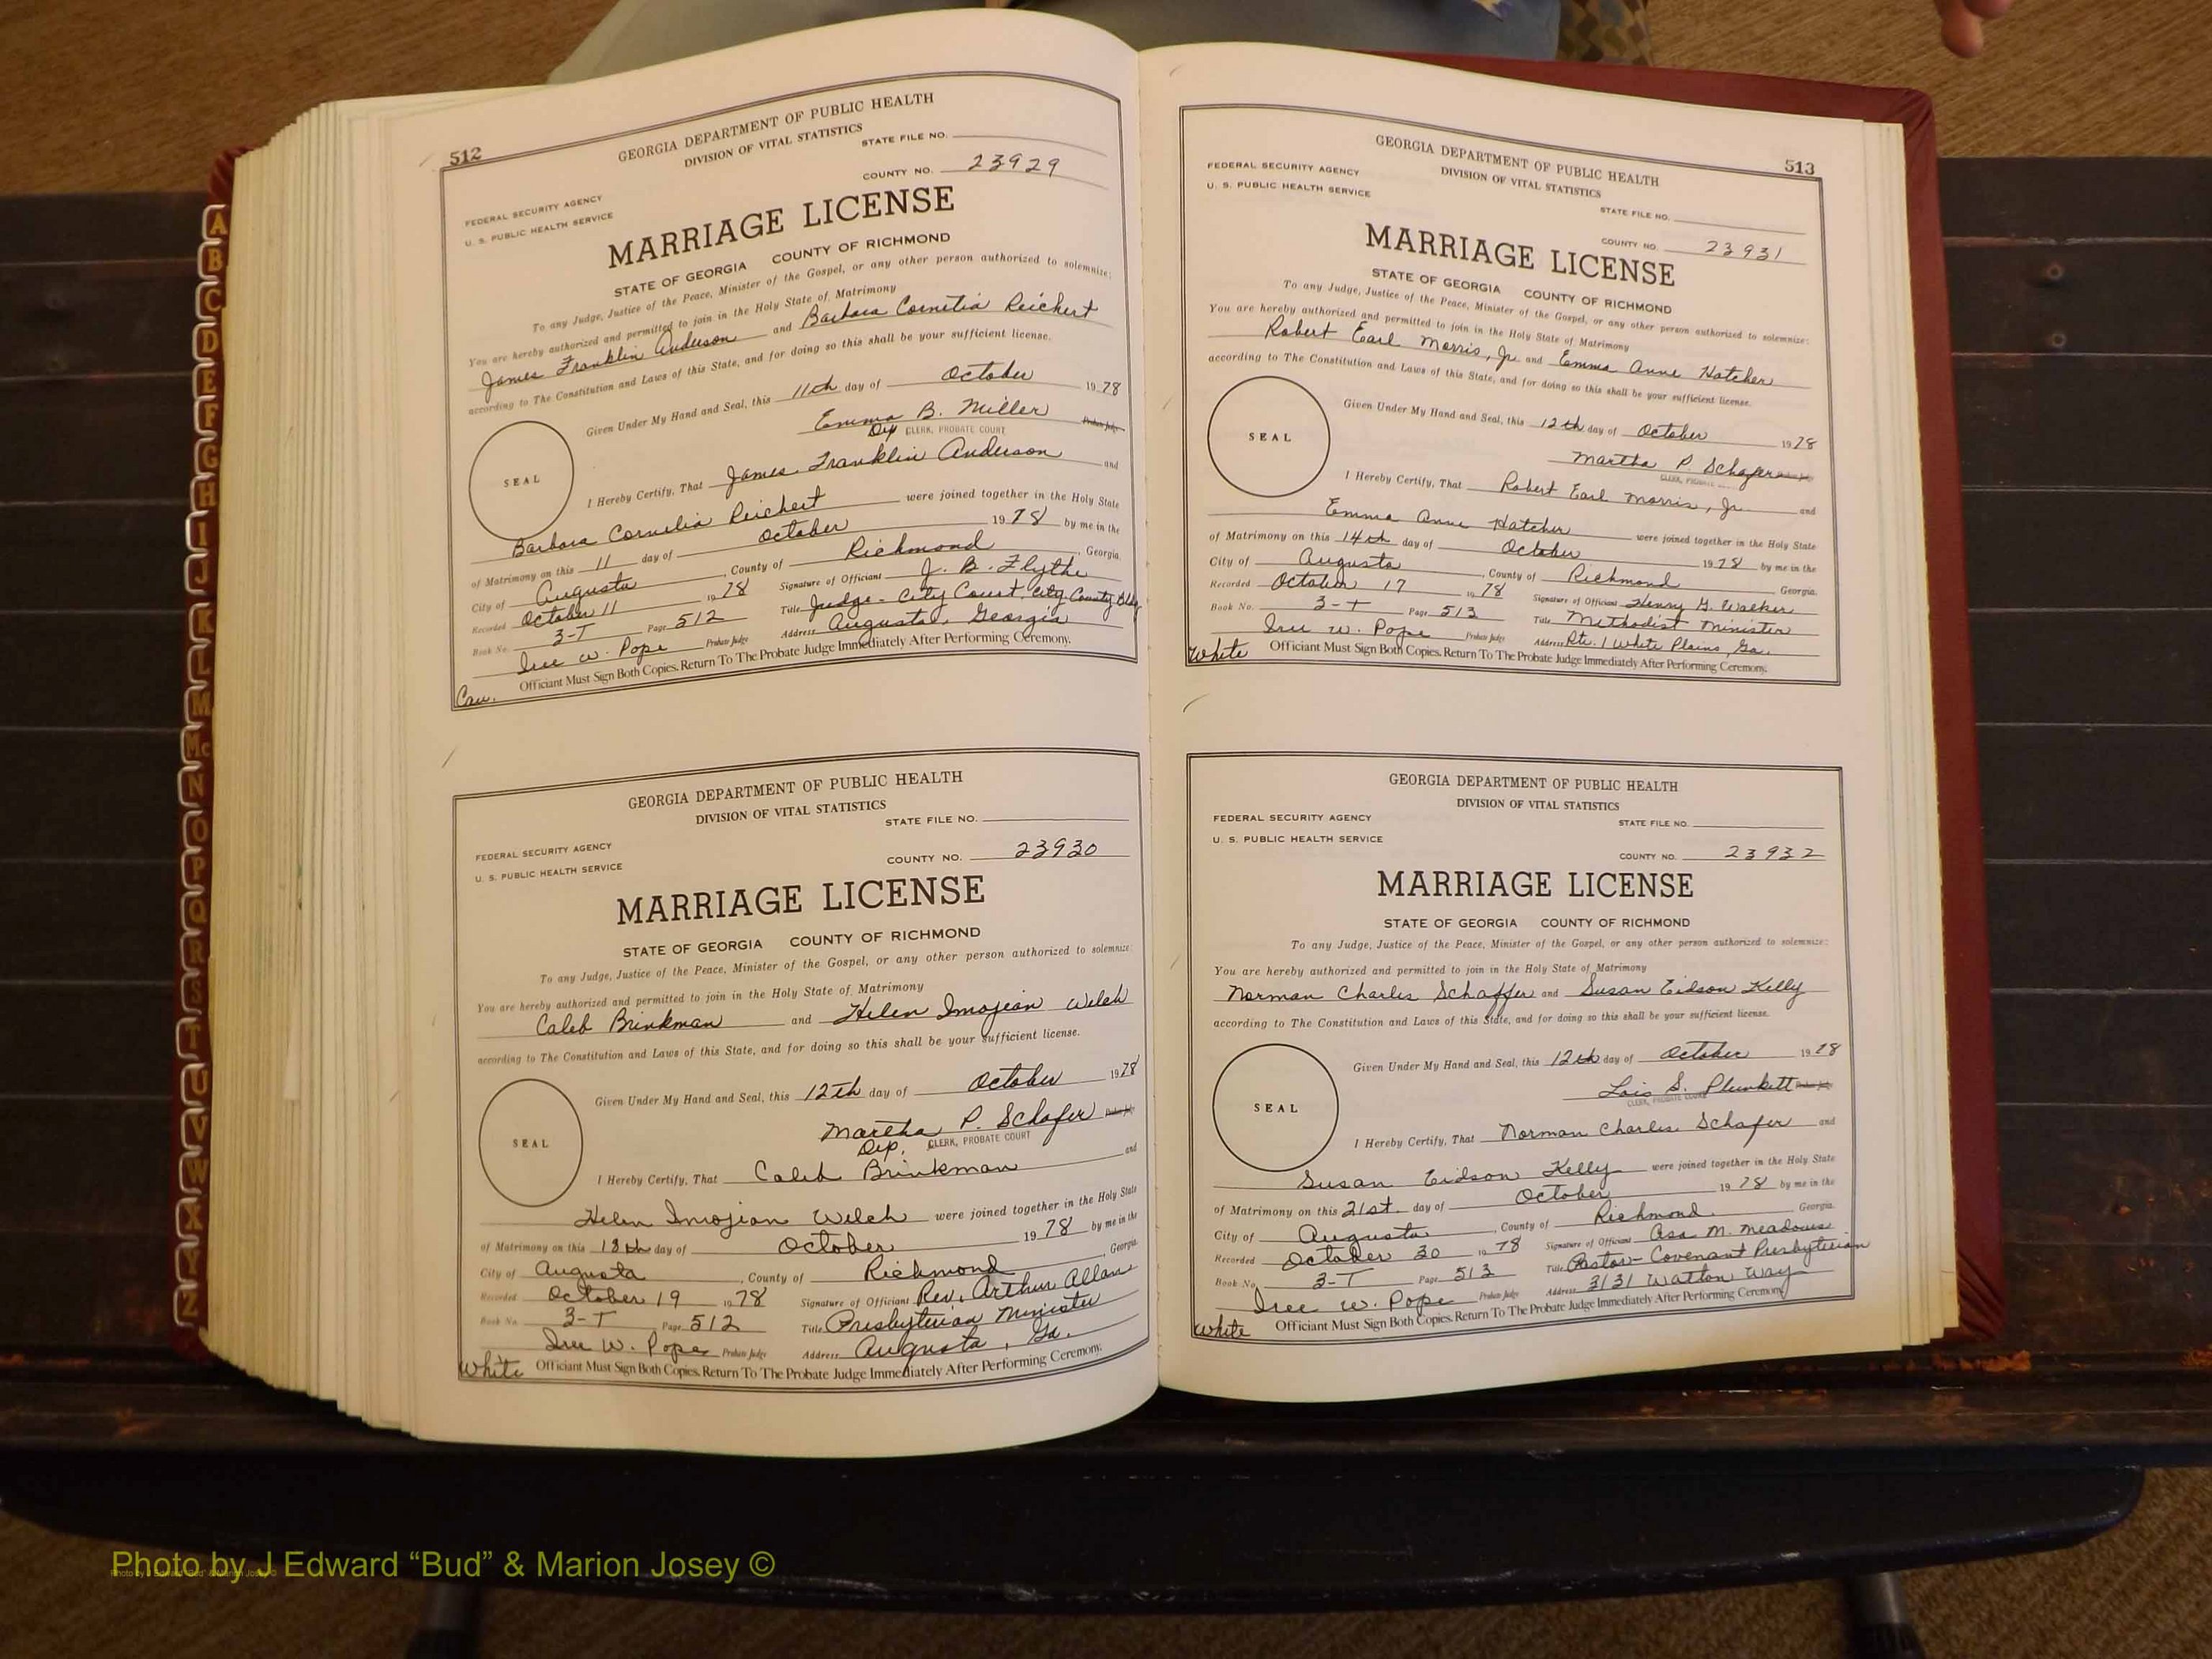 512
GEORGIA DEPARTMENT OF PUBLIC HEALTH
DIVISION OF VITAL STATISTICS
STATE FILE NO.
COUNTY NO. 23929
FEDERAL SECURITY AGENCY
U. S. PUBLIC HEALTH SERVICE
MARRIAGE LICENSE
STATE OF GEORGIA COUNTY OF RICHMOND
To any Judge, Justice of the Peace, Minister of the Gospel, or any other person authorized to solemnize:
You are hereby authorized and permitted to join in the Holy State of Matrimony
James Franklin Anderson and Barbara Cornelia Reichert
according to The Constitution and Laws of this State, and for doing so this shall be your sufficient license.
Given Under My Hand and Seal, this 11th day of October 1978
Emma B. Miller Probate Judge
Dep CLERK, PROBATE COURT
SEAL
I Hereby Certify, That James Franklin Anderson and
Barbara Cornelia Reichert were joined together in the Holy State
of Matrimony on this 11 day of October 1978 by me in the
City of Augusta, County of Richmond, Georgia.
Recorded October 11 1978 Signature of Officiant J. B. Flythe
Book No. 3-T Page 512 Title Judge - City Court, City County Bldg
Iree W. Pope Probate Judge Address Augusta, Georgia
Officiant Must Sign Both Copies. Return To The Probate Judge Immediately After Performing Ceremony.
Cau.
GEORGIA DEPARTMENT OF PUBLIC HEALTH
DIVISION OF VITAL STATISTICS
STATE FILE NO.
COUNTY NO. 23930
FEDERAL SECURITY AGENCY
U. S. PUBLIC HEALTH SERVICE
MARRIAGE LICENSE
STATE OF GEORGIA COUNTY OF RICHMOND
To any Judge, Justice of the Peace, Minister of the Gospel, or any other person authorized to solemnize:
You are hereby authorized and permitted to join in the Holy State of Matrimony
Caleb Brinkman and Helen Imojean Welch
according to The Constitution and Laws of this State, and for doing so this shall be your sufficient license.
Given Under My Hand and Seal, this 12th day of October 1978
Martha P. Schafer Probate Judge
Dep. CLERK, PROBATE COURT
SEAL
I Hereby Certify, That Caleb Brinkman and
Helen Imojian Welch were joined together in the Holy State
of Matrimony on this 18th day of October 1978 by me in the
City of Augusta, County of Richmond, Georgia.
Recorded October 19 1978 Signature of Officiant Rev. Arthur Allan
Book No. 3-T Page 512 Title Presbyterian Minister
Iree W. Pope Probate Judge Address Augusta, Ga.
White Officiant Must Sign Both Copies. Return To The Probate Judge Immediately After Performing Ceremony.
513
GEORGIA DEPARTMENT OF PUBLIC HEALTH
DIVISION OF VITAL STATISTICS
FEDERAL SECURITY AGENCY
U. S. PUBLIC HEALTH SERVICE
STATE FILE NO.
COUNTY NO. 23931
MARRIAGE LICENSE
STATE OF GEORGIA COUNTY OF RICHMOND
To any Judge, Justice of the Peace, Minister of the Gospel, or any other person authorized to solemnize:
You are hereby authorized and permitted to join in the Holy State of Matrimony
Robert Earl Morris, Jr. and Emma Anne Hatcher
according to The Constitution and Laws of this State, and for doing so this shall be your sufficient license.
Given Under My Hand and Seal, this 12th day of October 1978
Martha P. Schafer
CLERK, PROBATE
SEAL
I Hereby Certify, That Robert Earl Morris, Jr. and
Emma Anne Hatcher were joined together in the Holy State
of Matrimony on this 14th day of October 1978 by me in the
City of Augusta, County of Richmond Georgia.
Recorded October 17 1978 Signature of Officiant Henry G. Walker
Book No. 3-T Page 513 Title Methodist Minister
Iree W. Pope Probate Judge Address Rte. 1 White Plains, Ga.
White Officiant Must Sign Both Copies. Return To The Probate Judge Immediately After Performing Ceremony.
GEORGIA DEPARTMENT OF PUBLIC HEALTH
DIVISION OF VITAL STATISTICS
FEDERAL SECURITY AGENCY
U. S. PUBLIC HEALTH SERVICE
STATE FILE NO.
COUNTY NO. 23932
MARRIAGE LICENSE
STATE OF GEORGIA COUNTY OF RICHMOND
To any Judge, Justice of the Peace, Minister of the Gospel, or any other person authorized to solemnize:
You are hereby authorized and permitted to join in the Holy State of Matrimony
Norman Charles Schaffer and Susan Eidson Kelly
according to The Constitution and Laws of this State, and for doing so this shall be your sufficient license.
Given Under My Hand and Seal, this 12th day of October 1978
Lois S. Plunkett Probate Judge
CLERK, PROBATE COURT
SEAL
I Hereby Certify, That Norman Charles Schafer and
Susan Eidson Kelly were joined together in the Holy State
of Matrimony on this 21st. day of October 1978 by me in the
City of Augusta, County of Richmond Georgia.
Recorded October 30 1978 Signature of Officiant Asa M. Meadows
Book No. 3-T Page 513 Title Pastor - Covenant Presbyterian
Iree W. Pope Probate Judge Address 3131 Walton Way
White Officiant Must Sign Both Copies. Return To The Probate Judge Immediately After Performing Ceremony.
A
B
C
D
E
F
G
H
I
J
K
L
M
Mc
N
O
P
Q
R
S
T
U
V
W
X
Y
Z
Photo by J Edward “Bud” & Marion Josey ©
Photo by J Edward “Bud” & Marion Josey ©